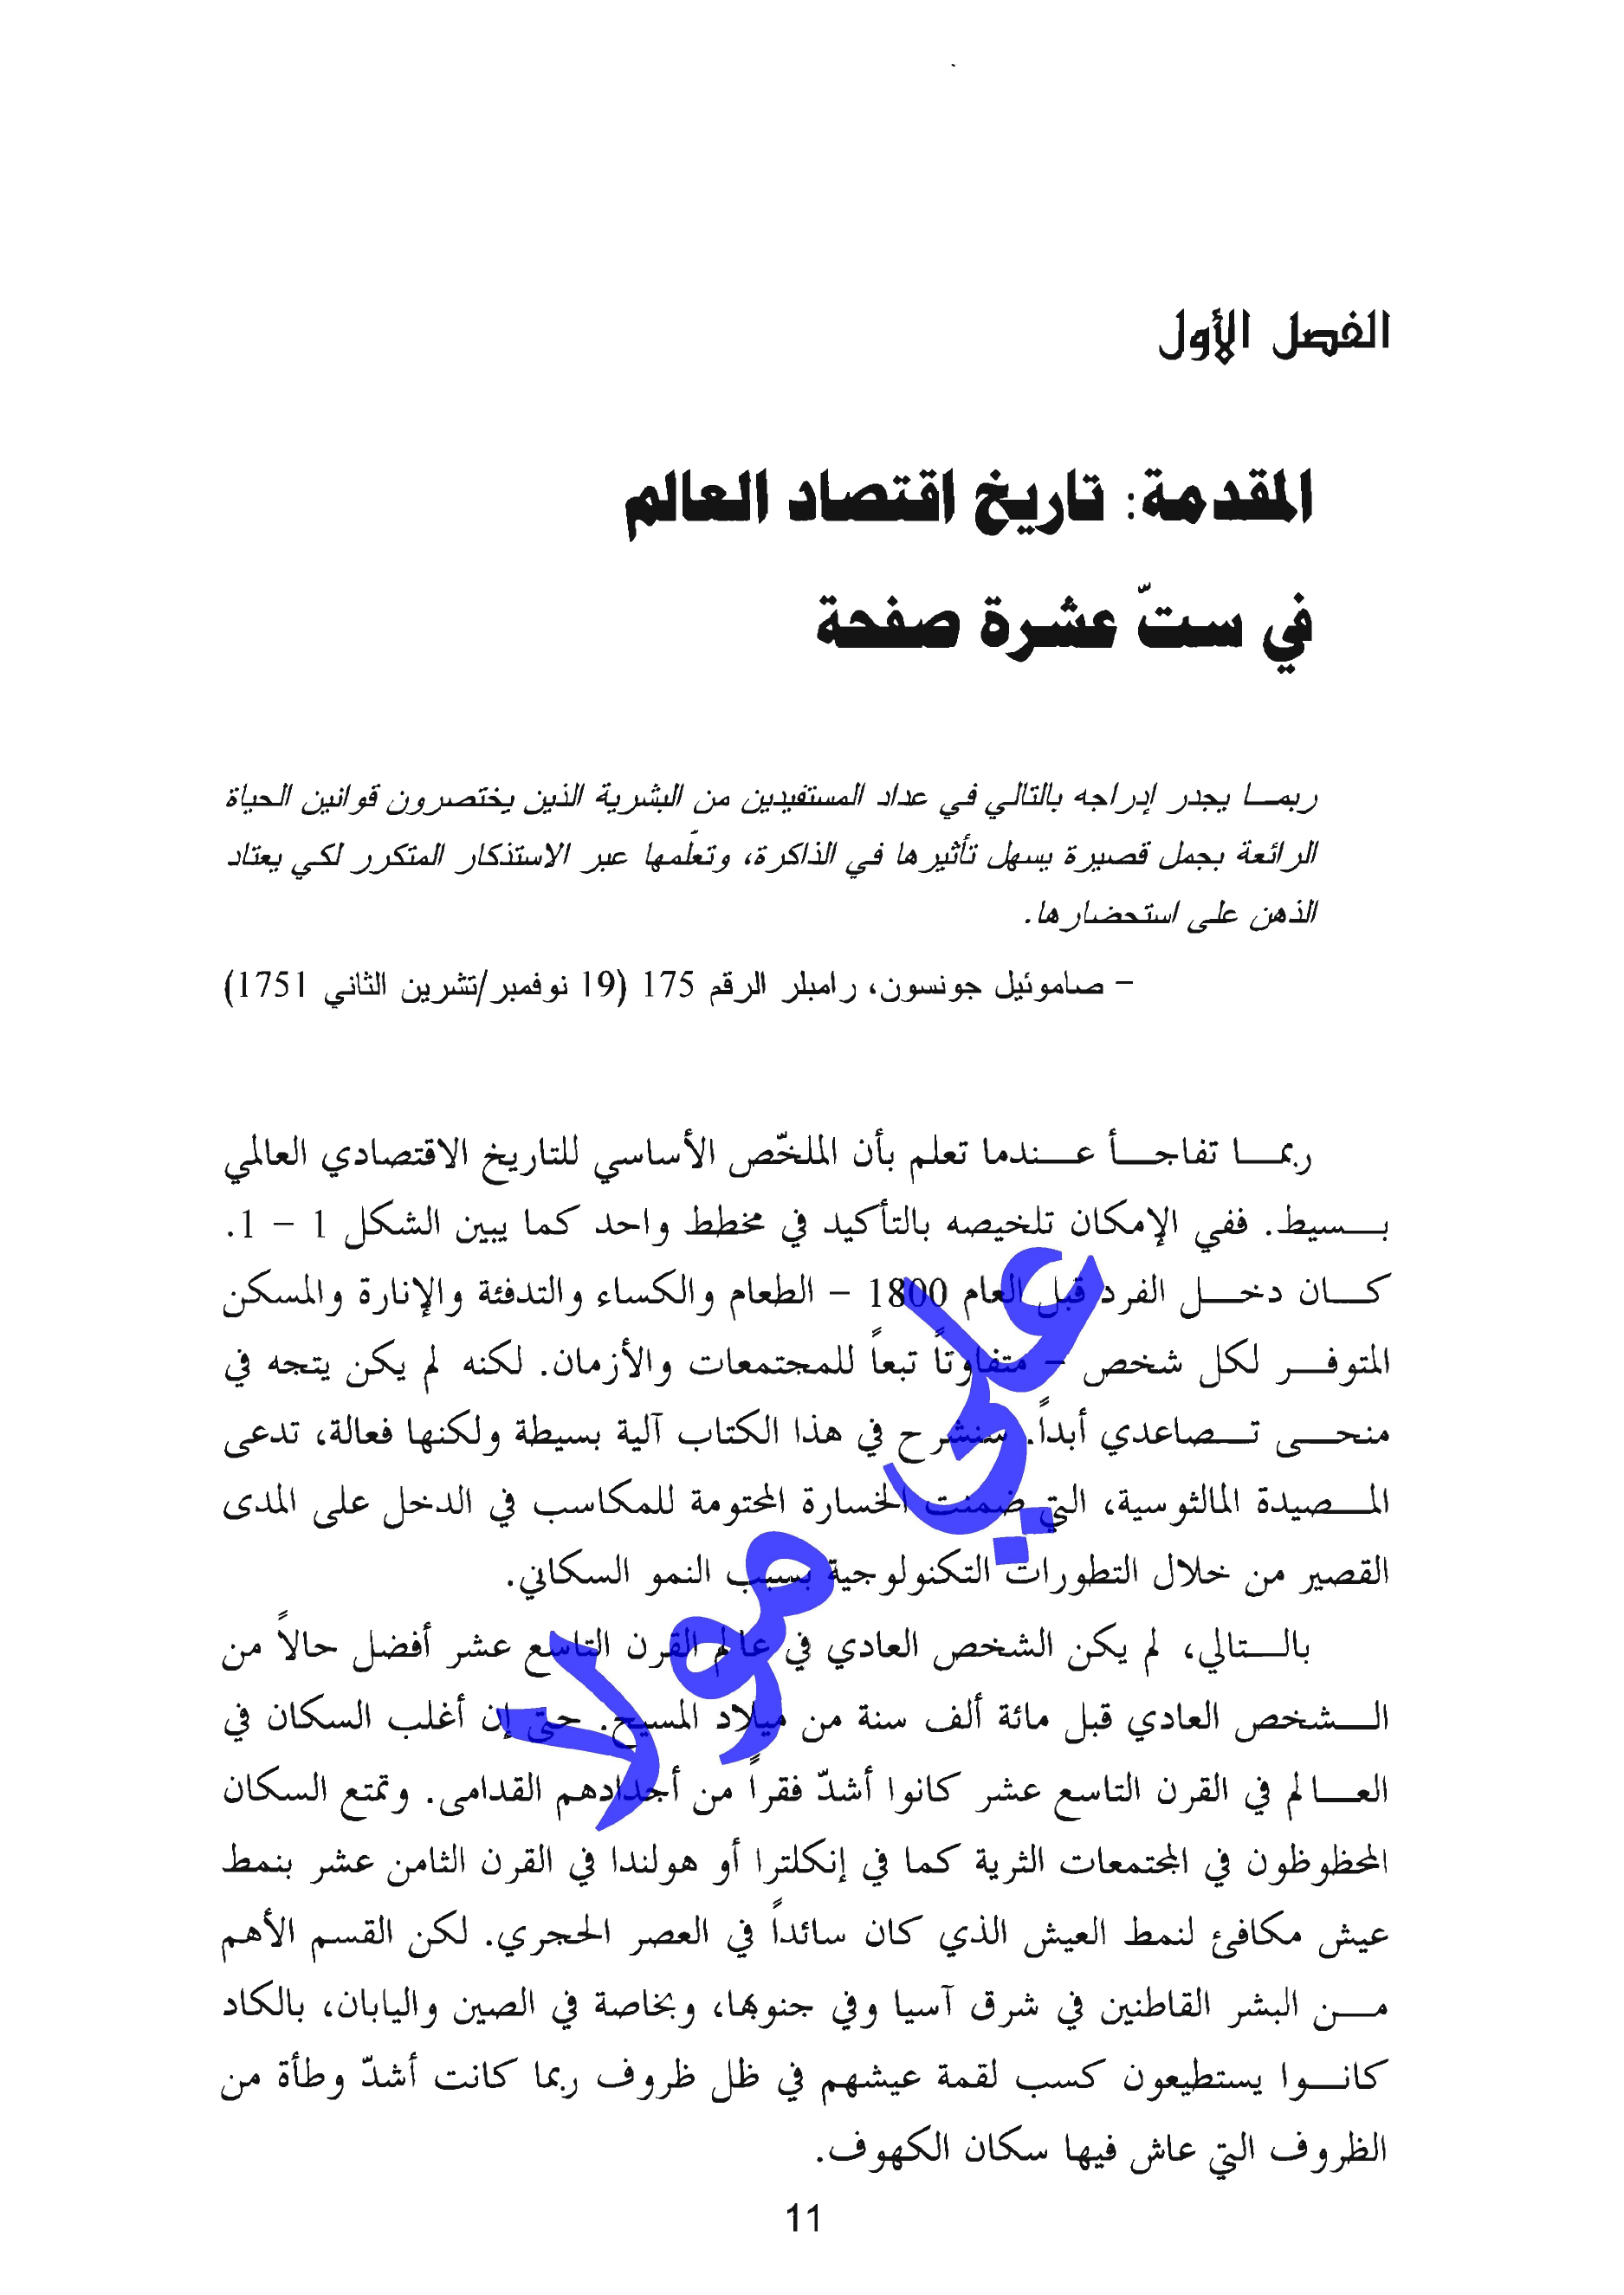 الفصل الأول
المقدمة: تاريخ اقتصاد العالم
في ستّ عشرة صفحة
ربما يجدر إدراجه بالتالي في عداد المستفيدين من البشرية الذين يختصرون قوانين الحياة
الرائعة بجمل قصيرة يسهل تأثيرها في الذاكرة، وتعلّمها عبر الاستذكار المتكرر لكي يعتاد
الذهن على استحضارها.
– صاموئيل جونسون، رامبلر الرقم 175 (19 نوفمبر/تشرين الثاني 1751)
ربما تفاجأ عندما تعلم بأن الملخّص الأساسي للتاريخ الاقتصادي العالمي
بسيط. ففي الإمكان تلخيصه بالتأكيد في مخطط واحد كما يبين الشكل 1 – 1.
كان دخل الفرد قبل العام 1800 – الطعام والكساء والتدفئة والإنارة والمسكن
المتوفر لكل شخص – متفاوتاً تبعاً للمجتمعات والأزمان. لكنه لم يكن يتجه في
منحى تصاعدي أبداً. سنشرح في هذا الكتاب آلية بسيطة ولكنها فعالة، تدعى
المصيدة المالثوسية، التي ضمنت الخسارة المحتومة للمكاسب في الدخل على المدى
القصير من خلال التطورات التكنولوجية بسبب النمو السكاني.
بالتالي، لم يكن الشخص العادي في عالم القرن التاسع عشر أفضل حالاً من
الشخص العادي قبل مائة ألف سنة من ميلاد المسيح. حتى إن أغلب السكان في
العالم في القرن التاسع عشر كانوا أشدّ فقراً من أجدادهم القدامى. وتمتع السكان
المحظوظون في المجتمعات الثرية كما في إنكلترا أو هولندا في القرن الثامن عشر بنمط
عيش مكافئ لنمط العيش الذي كان سائداً في العصر الحجري. لكن القسم الأهم
من البشر القاطنين في شرق آسيا وفي جنوبها، وبخاصة في الصين واليابان، بالكاد
كانوا يستطيعون كسب لقمة عيشهم في ظل ظروف ربما كانت أشدّ وطأة من
الظروف التي عاش فيها سكان الكهوف.
11
علي مولا